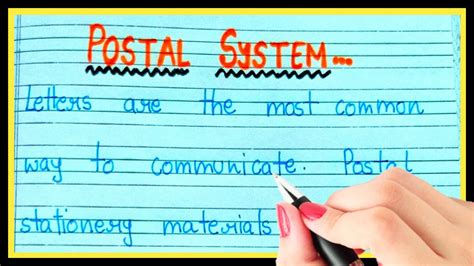 POSTAL SYSTEM...
Letters are the most common
way to communicate. Postal
stationery materials